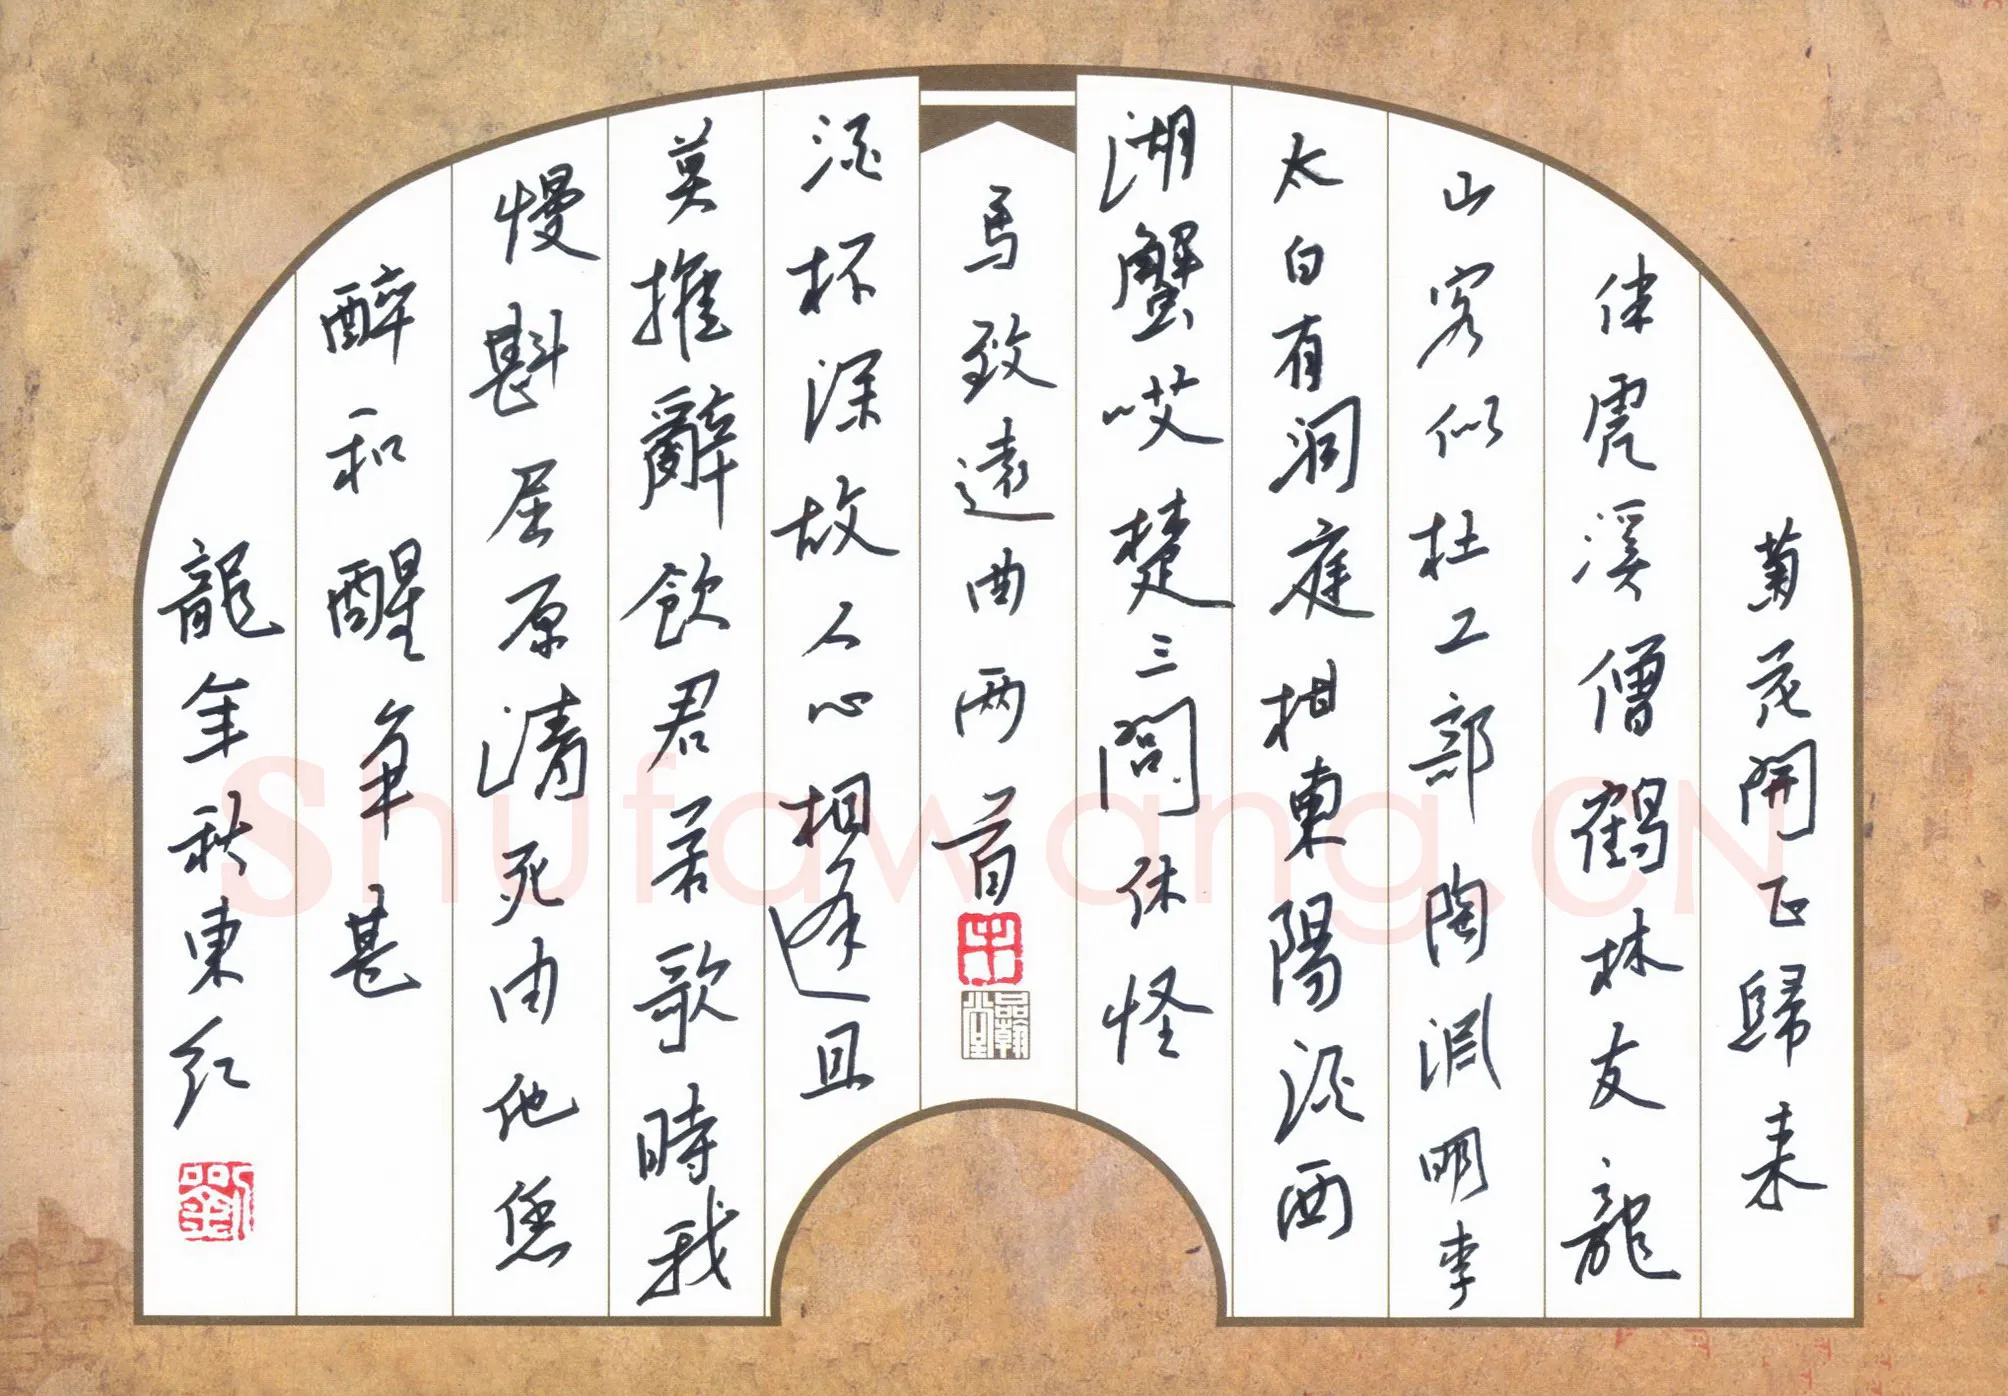 菊花開正歸来
伴虎溪僧鶴林友龍
山客似杜工部陶淵明李
太白有洞庭柑東陽酒西
湖蟹哎楚三閭休怪
馬致遠曲两首
酒杯深故人心相逢且
莫推辭飲君若歌時我
慢斟屈原清死由他恁
醉和醒争甚
龍年秋東紅
劉
品翰堂
Shufawang.CN